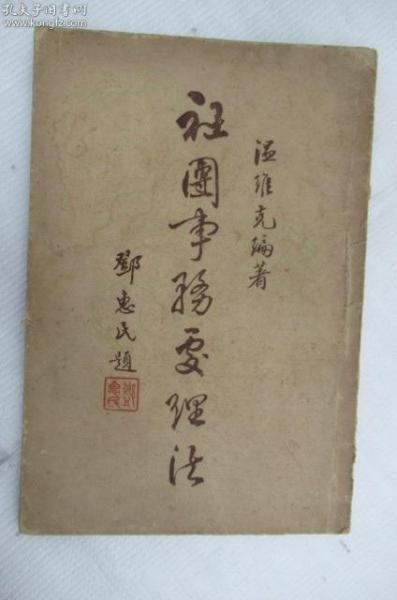 温維克編著
社團事務處理法
鄧惠民題
孔夫子旧书网
www.kongfz.com